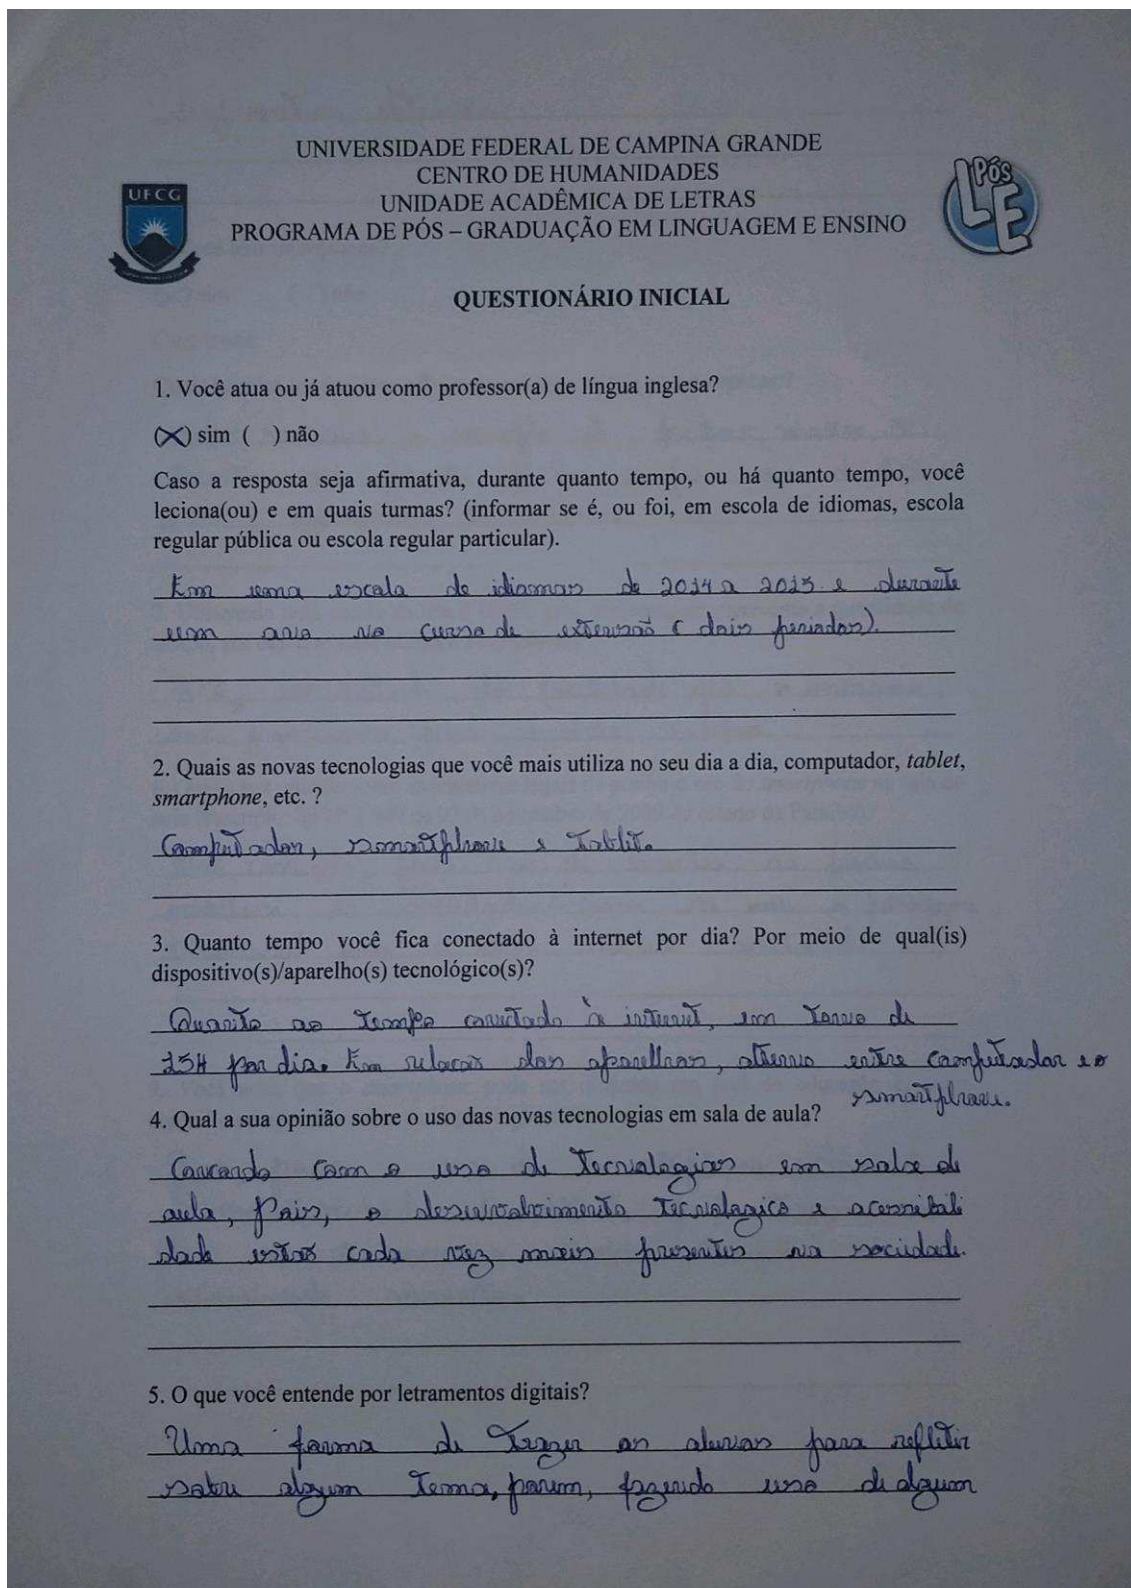 UNIVERSIDADE FEDERAL DE CAMPINA GRANDE
CENTRO DE HUMANIDADES
UNIDADE ACADÊMICA DE LETRAS
PROGRAMA DE PÓS – GRADUAÇÃO EM LINGUAGEM E ENSINO
UFCG
PÓS
LE
QUESTIONÁRIO INICIAL
1. Você atua ou já atuou como professor(a) de língua inglesa?
(X) sim ( ) não
Caso a resposta seja afirmativa, durante quanto tempo, ou há quanto tempo, você
leciona(ou) e em quais turmas? (informar se é, ou foi, em escola de idiomas, escola
regular pública ou escola regular particular).
Em uma escola de idiomas de 2014 a 2015 e durante
um ano no curso de extensão (dois períodos).
2. Quais as novas tecnologias que você mais utiliza no seu dia a dia, computador, tablet,
smartphone, etc. ?
Computador, smartphone e tablet.
3. Quanto tempo você fica conectado à internet por dia? Por meio de qual(is)
dispositivo(s)/aparelho(s) tecnológico(s)?
Quanto ao tempo conectado à internet, em torno de
15H por dia. Em relação dos aparelhos, alterno entre computador e o
smartphone.
4. Qual a sua opinião sobre o uso das novas tecnologias em sala de aula?
Concordo com o uso de tecnologias em sala de
aula, pois, o desenvolvimento tecnologico e acessibili
dade estão cada vez mais presentes na sociedade.
5. O que você entende por letramentos digitais?
Uma forma de trazer os alunos para refletir
sobre algum tema, porem, fazendo uso de algum